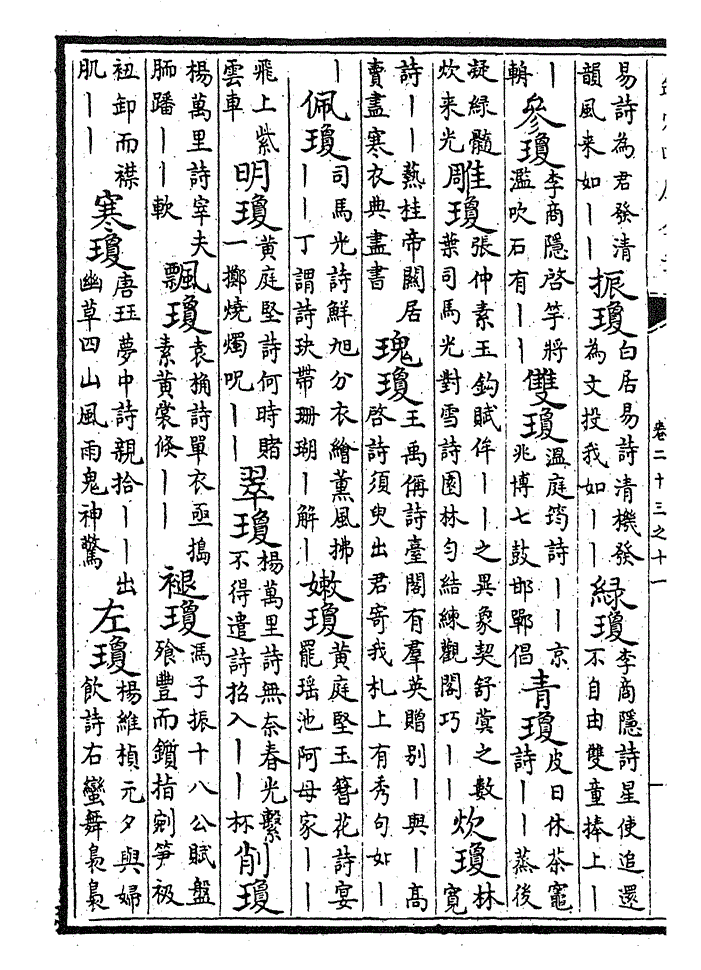 易詩為君發清韻風来如｜｜ 振瓊 白居易詩清機發為文投我如｜｜ 綠瓊 李商隱詩星使追還不自由雙童捧上｜
｜輈 參瓊 李商隱啓竽將濫吹石有｜｜ 雙瓊 温庭筠詩｜｜京兆博七鼓邯鄲倡 青瓊 皮日休茶竈詩｜｜蒸後
凝綠髓炊来光 雕瓊 張仲素玉鈎賦侔｜｜之異象契舒蓂之數葉司馬光對雪詩園林匀結練觀閣巧｜｜ 炊瓊 林寛
詩｜｜爇桂帝關居賣盡寒衣典盡書 瑰瓊 王禹偁詩臺閣有羣英贈别｜與｜高啓詩須臾出君寄我札上有秀句如｜
｜ 佩瓊 司馬光詩鮮旭分衣繪薰風拂｜｜丁謂詩玦帶珊瑚｜解｜ 嫩瓊 黄庭堅玉簪花詩宴罷瑶池阿母家｜｜
飛上紫雲車 明瓊 黄庭堅詩何時賭一擲燒燭呪｜｜ 翠瓊 楊萬里詩無奈春光繫不得遣詩招入｜｜杯 削瓊
楊萬里詩宰夫胹蹯｜｜軟 飄瓊 袁桷詩單衣亟搗素黄裳倏｜｜ 褪瓊 馮子振十八公賦盤飱豐而鑚指剜笋衱
衽卸而襟肌｜｜ 寒瓊 唐珏夢中詩親拾｜｜出幽草四山風雨鬼神驚 左瓊 楊維楨元夕與婦飲詩右蠻舞裊裊
卷二十三之十一